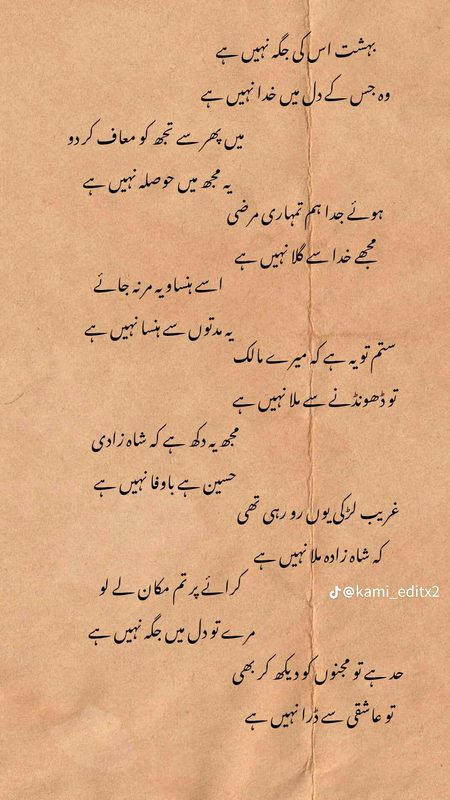 بہشت اس کی جگہ نہیں ہے
وہ جس کے دل میں خدا نہیں ہے
میں پھر سے تجھ کو معاف کر دو
یہ مجھ میں حوصلہ نہیں ہے
ہوئے جدا ہم تمہاری مرضی
مجھے خدا سے گلا نہیں ہے
اسے ہنساو یہ مر نہ جائے
یہ مدتوں سے ہنسا نہیں ہے
ستم تو یہ ہے کہ میرے مالک
تو ڈھونڈنے سے ملا نہیں ہے
مجھ یہ دکھ ہے کہ شاہ زادی
حسین ہے باوفا نہیں ہے
غریب لڑکی یوں رو رہی تھی
کہ شاہ زادہ ملا نہیں ہے
کرائے پر تم مکان لے لو
@kami_editx2
مرے تو دل میں جگہ نہیں ہے
حد ہے تو مجنوں کو دیکھ کر بھی
تو عاشقی سے ڈرا نہیں ہے